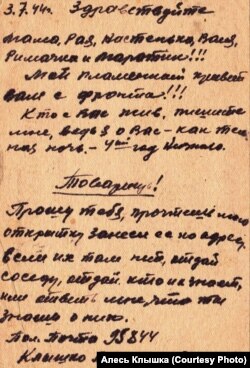 3.7.44г. Здравствуйте
Мама, Рая, Настенька, Валя,
Римочка и Маратик!!!
Мой пламенный привет
вам с фронта!!!
Кто с Вас жив, пишите
мне, ведь о Вас – как тем
ная ночь – 4ый год ничего.
Товарищ!
Прошу тебя, прочтеш мою
открытку занеси ее по адресу,
если их там нет, отдай
соседу, отдай кто их знает,
или ответь мне, что ты
знаеш о них.
Пол. Почта 95844
Клышко
Алесь Клышка (Courtesy Photo)